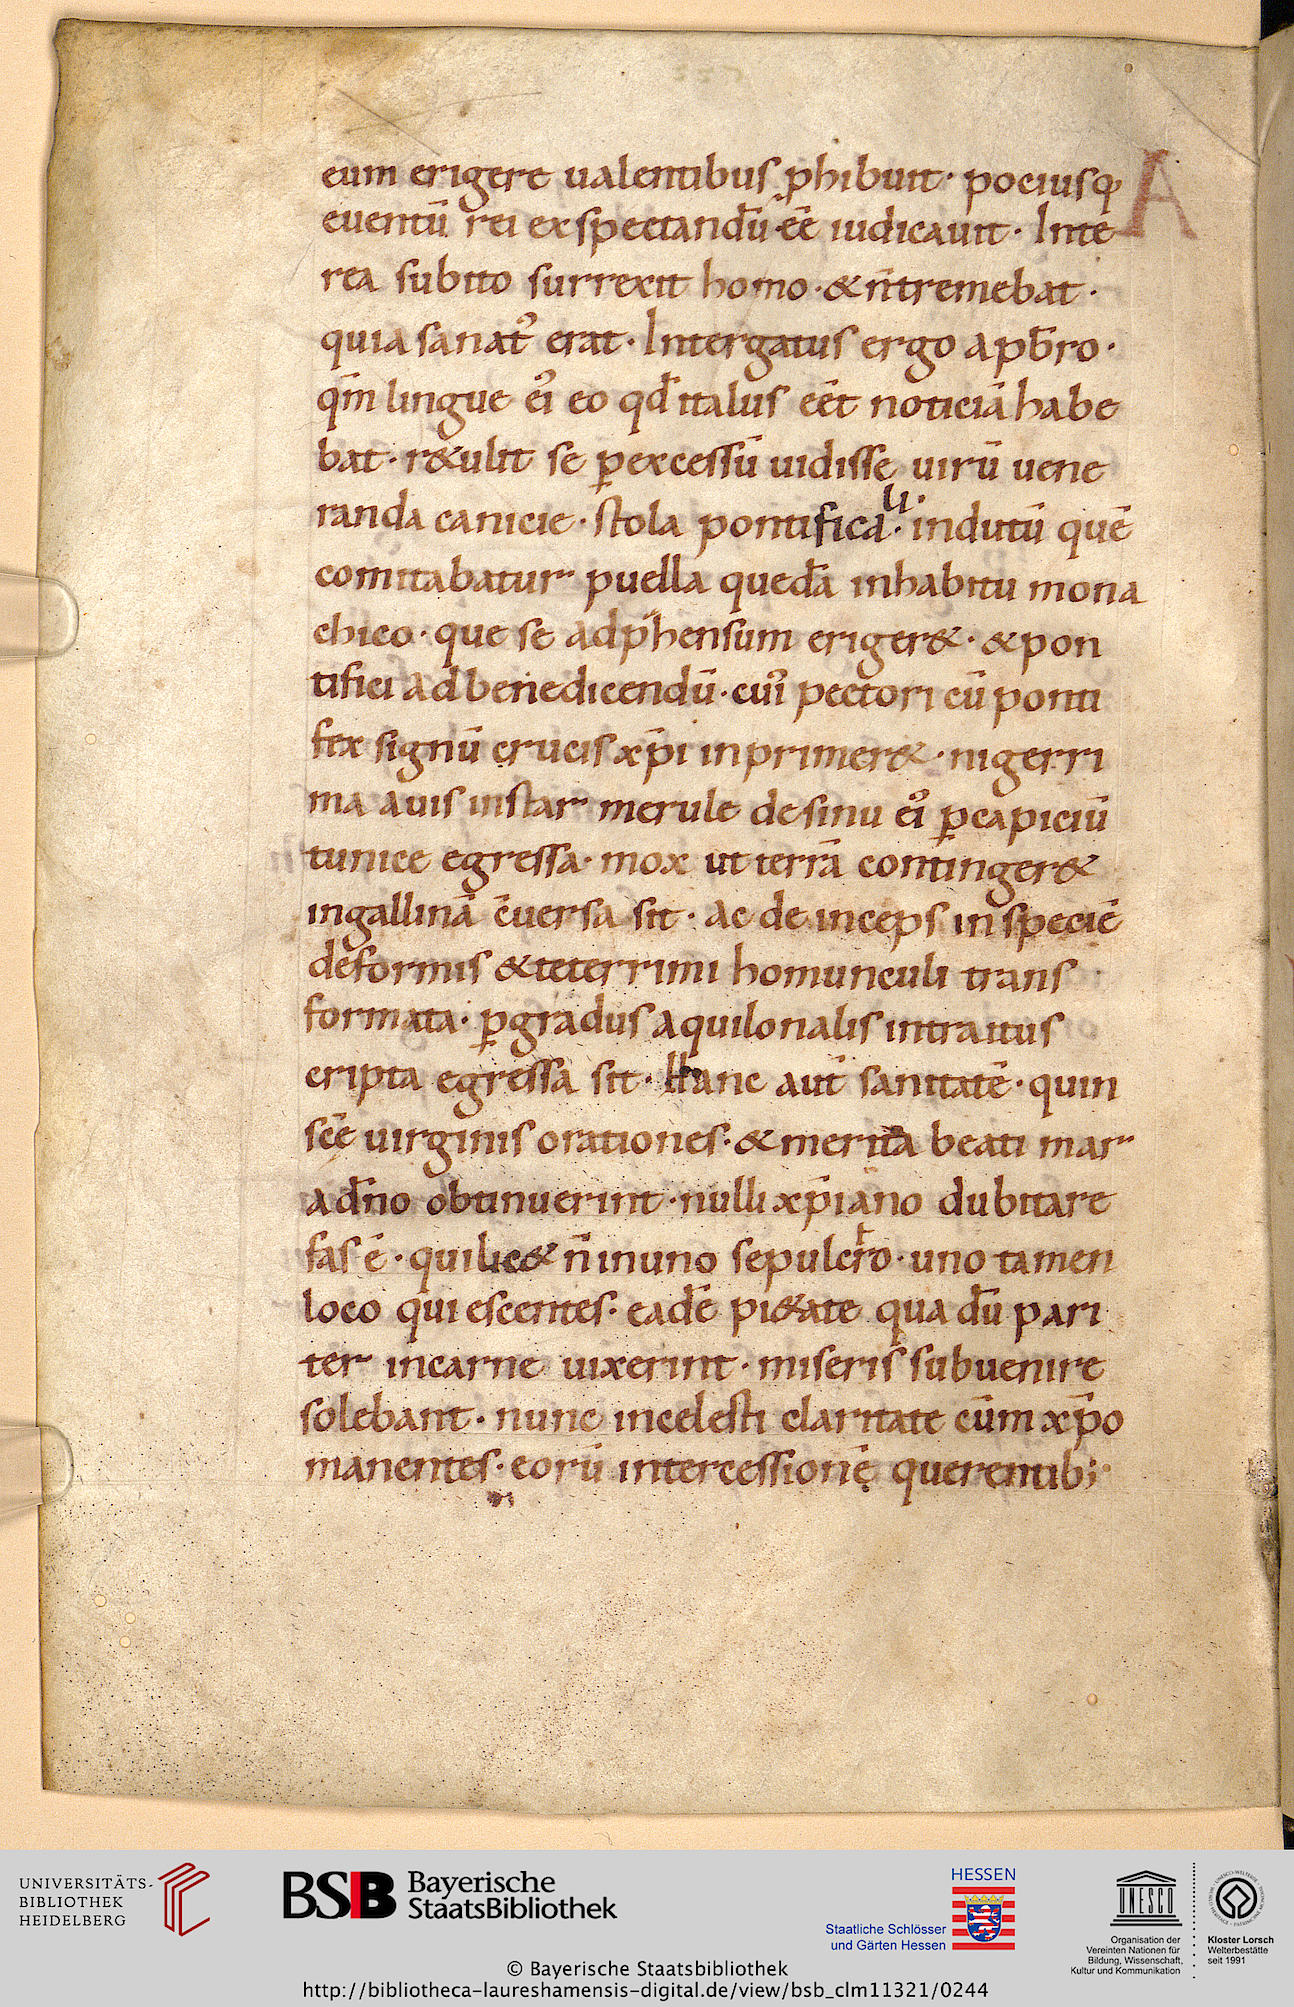 eum erigere ualentibus p̄hibuit · pociusq;
A
euentū rei exspectandū · eē̄ iudicauit · Inte
rea subito surrexit homo · & n̄ tremebat ·
quia sanat᾽ erat · Interrogatus ergo a pƀro ·
qm̄ lingue ei᾽ eo qđ italus eēt noticiā habe
bat · r&ulit se ꝑ excessū uidisse uirū uene
randa canicie · stola pontificali · indutū quē
comitabatur puella quedā in habitu mona
chico · que se ad p̄hensum eriger& · & pon
tifici ad benedicendū · cui᾽ pectori cū ponti
fex signū crucis xp̄i in primer& · nigerri
ma auis instar merule de sinu ei᾽ ꝑ capiciū
tunice egressa · mox ut terrā continger&
in gallinā c̄uersa sit · ac de inceps in speciē
deformis & teterrimi homunculi trans
formata · ꝑ gradus aquilonalis intraitus
cripta egressa sit · Hanc aut̄ sanitatē · quin
scē uirginis orationes · & merita beati mar
adn̄o obtinuerint · nulli xp̄iano dubitare
fas ē · qui lic& n̄ in uno sepulcro · uno tamen
loco quiescentes · eadē pi&ate qua dū pari
ter in carne uixerint · miseris subuenire
solebant · nunc in celesti claritate cūm xp̄o
manentes · eorū intercessionē querentib;
UNIVERSITÄTS-
BIBLIOTHEK
HEIDELBERG
BSB Bayerische
StaatsBibliothek
HESSEN
Staatliche Schlösser
und Gärten Hessen
UNESCO
Organisation der
Vereinten Nationen für
Bildung, Wissenschaft,
Kultur und Kommunikation
Kloster Lorsch
Welterbestätte
seit 1991
© Bayerische Staatsbibliothek
http://bibliotheca-laureshamensis-digital.de/view/bsb_clm11321/0244